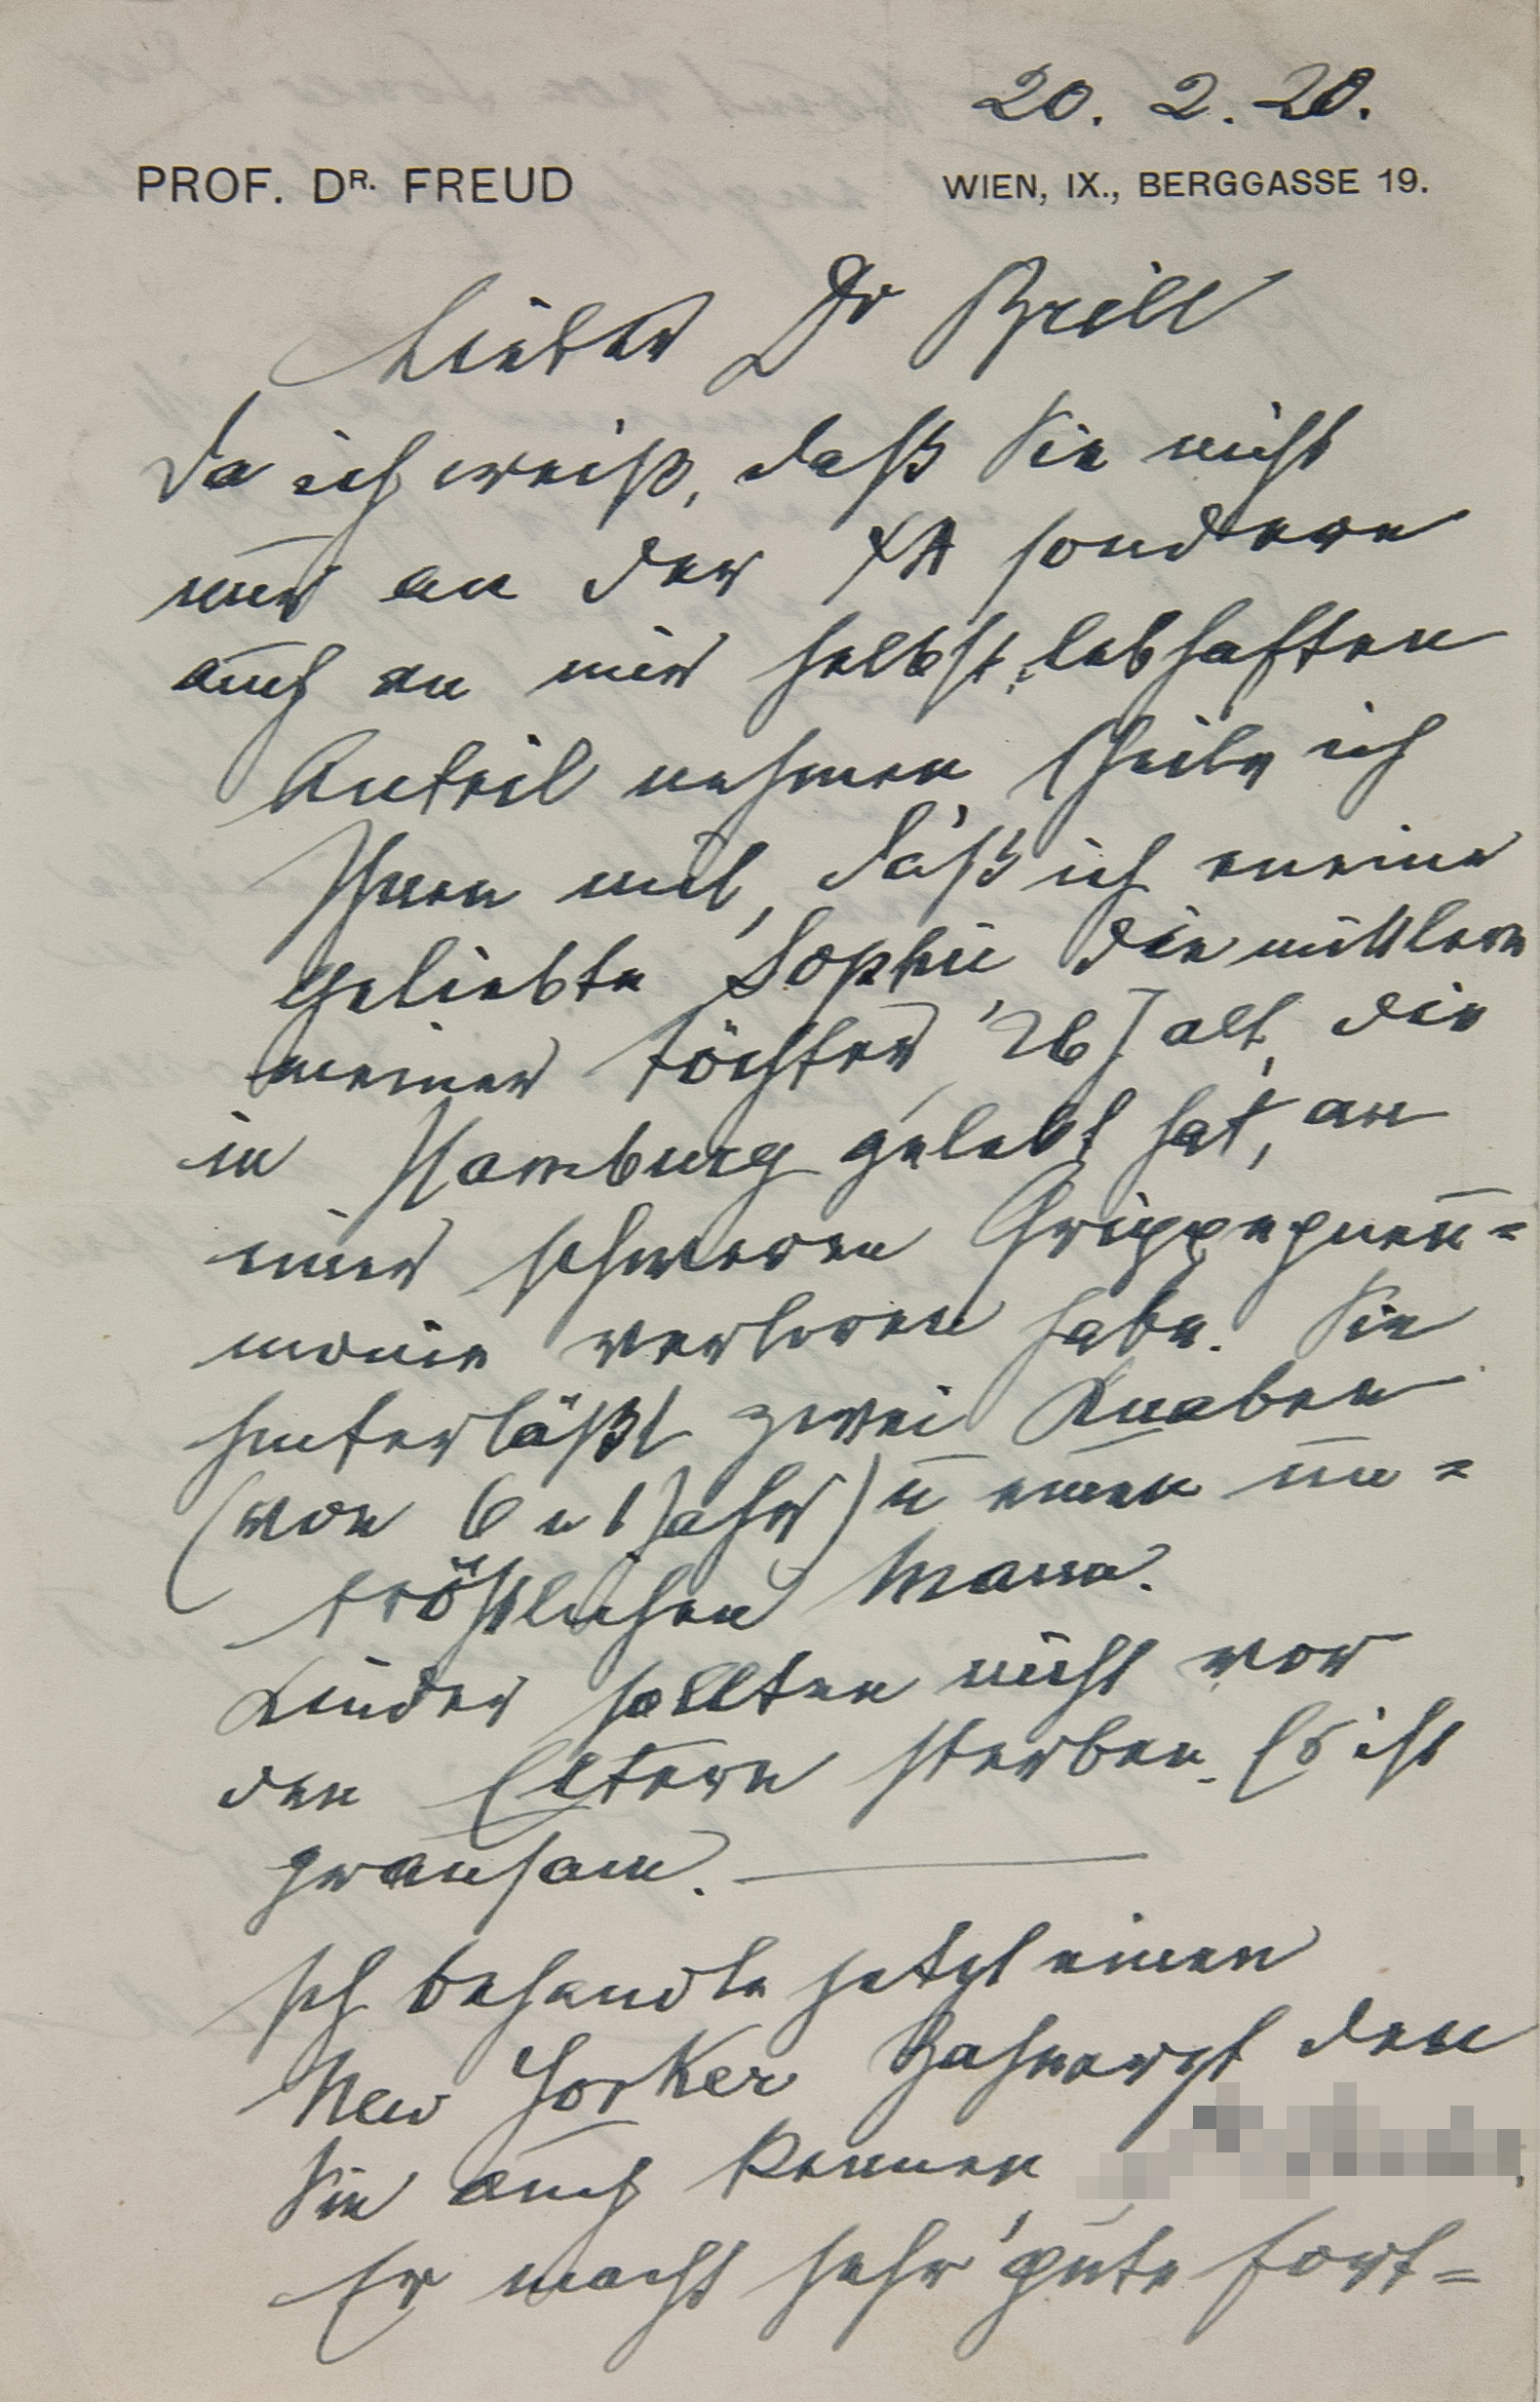 20. 2. 20.
PROF. DR. FREUD
WIEN, IX., BERGGASSE 19.
Lieber Dr Brill
Da ich weiß, daß Sie nicht
nur an der ΨA sondern
auch an mir selbst lebhaften
Anteil nehmen, theile ich
Ihnen mit, daß ich meine
geliebte Sophie die mittlere
meiner Töchter, 26 J alt, die
in Hamburg gelebt hat, an
einer schweren Grippepneu=
monie verloren habe. Sie
hinterläßt zwei Knaben
(von 6 u 1 Jahr) u einen un=
tröstlichen Mann.
Kinder sollten nicht vor
den Eltern sterben. Es ist
grausam.
Ich behandle jetzt einen
New Yorker Zahnarzt den
Sie auch kennen,
Er macht sehr gute Fort=